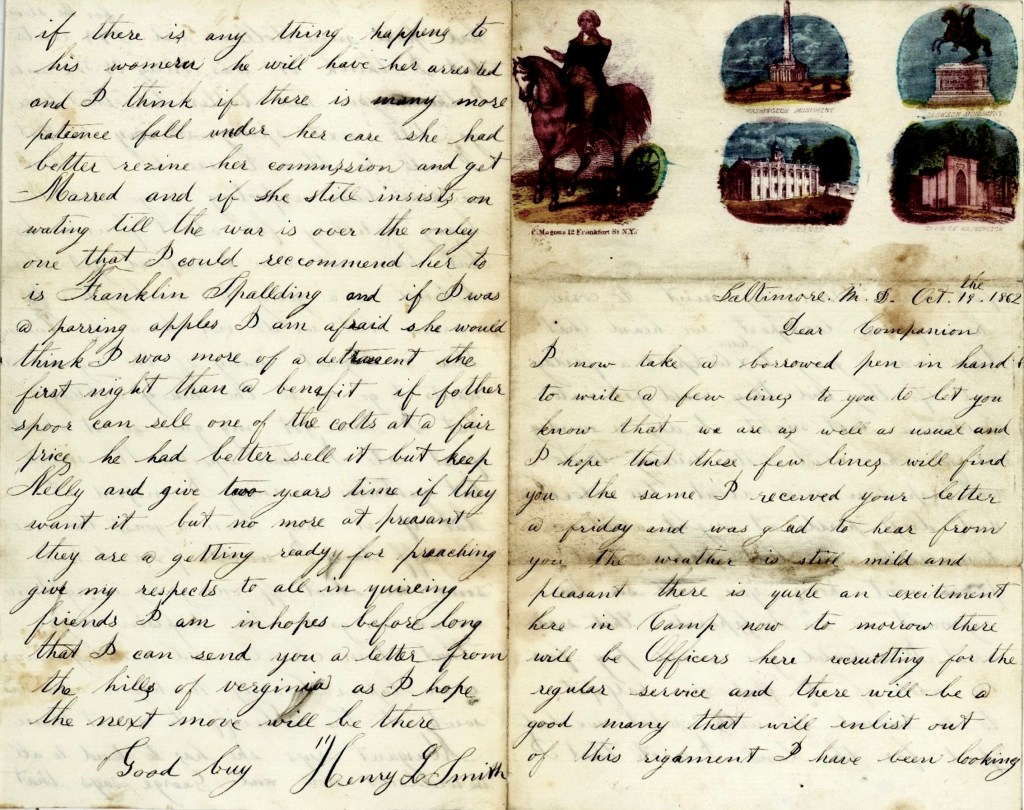 if there is any thing happens to
his women he will have her arrested
and I think if there is many more
patience fall under her care she had
better rezine her commission and get
Marred and if she still insists on
wating till the war is over the onley
one that I could reccommend her to
is Franklin Spallding and if I was
a parring apples I am afraid she would
think I was more of a detrucent the
first night than a benefit if fother
spoor can sell one of the colts at a fair
price he had better sell it but keep
Nelly and give two years time if they
want it but no more at preasant
they are a getting ready for preaching
give my respects to all in quireing
friends I am inhopes before long
that I can send you a letter from
the hills of verginia as I hope
the next move will be there
Good buy Henry L Smith
WASHINGTON MONUMENT
JACKSON MONUMENT
C. Magnus 12 Frankfort St N.Y.
Baltimore. M. D. Oct. 19the. 1862
Dear Companion
I now take a borrowed pen in hand
to write a few lines to you to let you
know that we are as well as usual and
I hope that these few lines will find
you the same I received your letter
a friday and was glad to hear from
you the weather is still mild and
pleasant there is quite an excitement
here in Camp now to morrow there
will be Officers here recruitting for the
regular service and there will be a
good many that will enlist out
of this rigament I have been looking